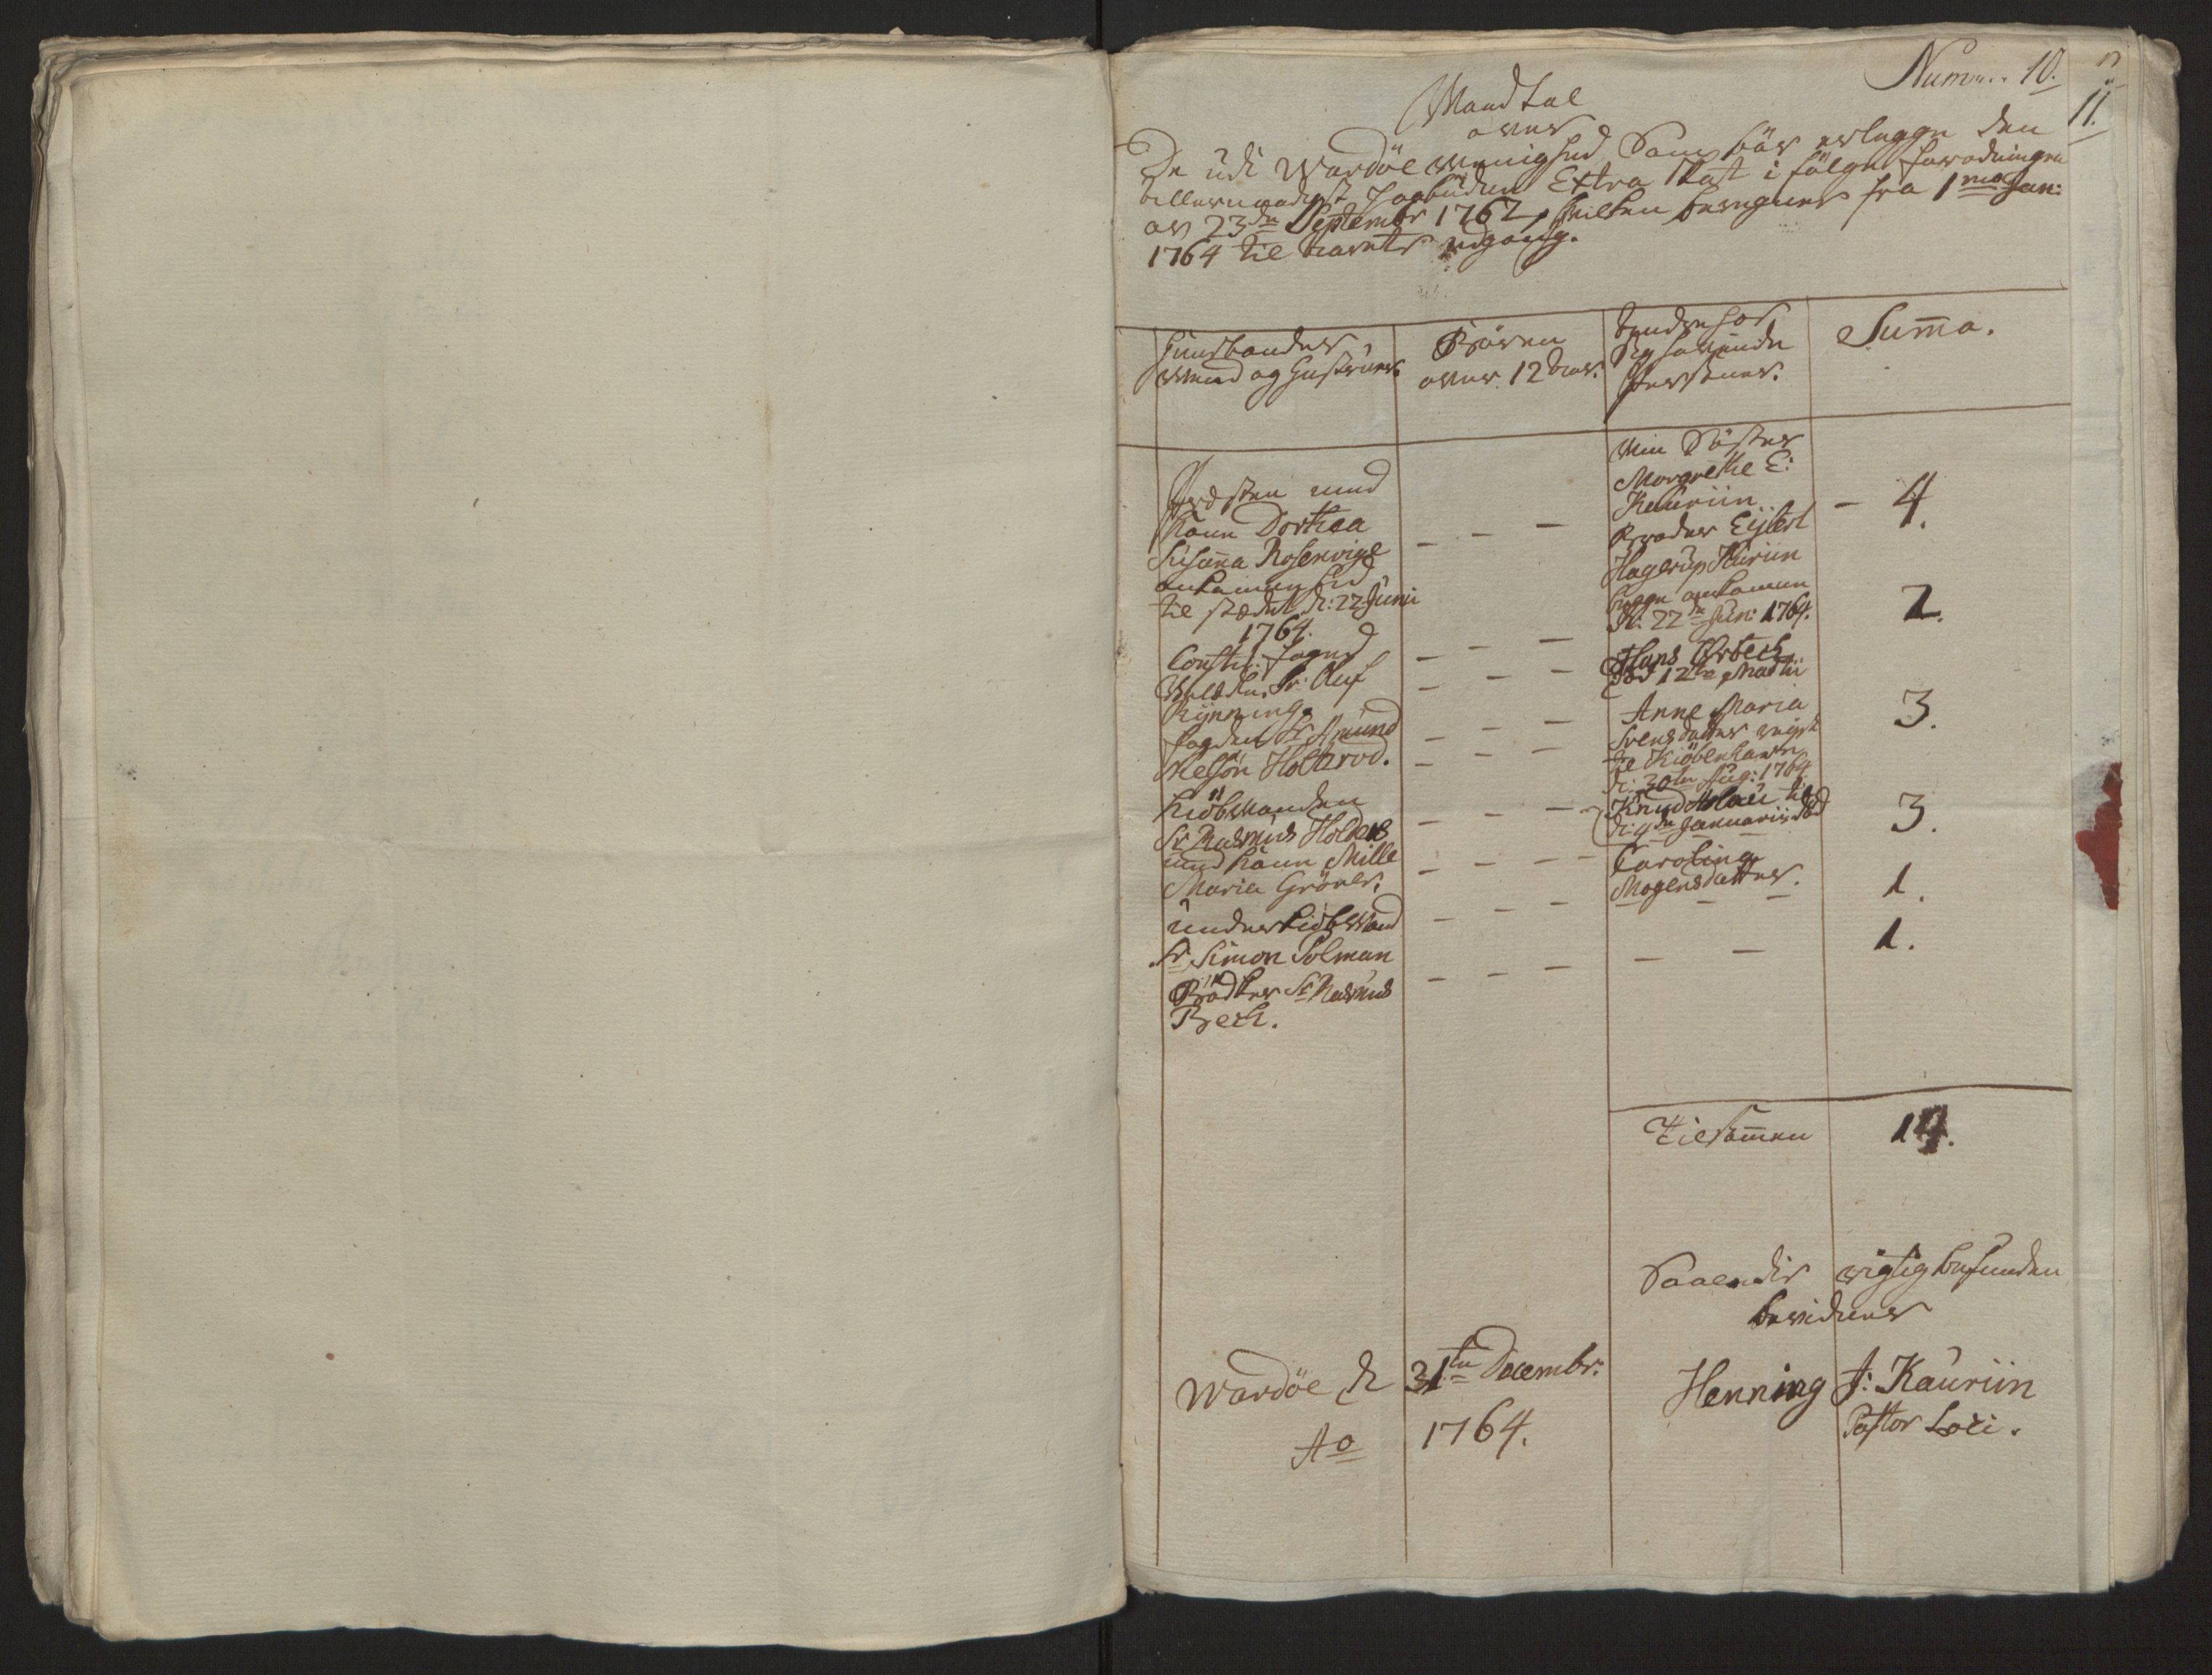 Numer. 10.
11.
Mandtal
over
De udi Wardöe Menighed Som bör erlegge den
allernaadigst paabudne Extra Skat i fölge forordningen
av 23de Septembr 1762, hvilken beregnes fra 1mo Jan:
1764 til aarets udgang.
Huusbonder
Mænd og Hustruer.
Börn
over 12 Aar.
andre hos
sig havende
Personer.
Sum̄a.
Præsten med
Kone Dorthea
Susan̄a Rosenvinge
ankommen hid
til stædet d: 22 Junii
1764.
Min Söster
Margrethe E:
Kauriin
Broder Eylert
Hagerup Kauriin
begge ankommen
d: 22de Jun: 1764.
4.
Constit: foged
Sr: Auf
Rynning.
Hans Orbech
död 12te Martii
2.
fogden Sr Amund
Nelsön Holterod.
Anne Maria
Svensdatter reigst
til Kiöbenhavn
d: 30te Aug: 1764
3.
Kiöbmanden
Sr Rasmus Holders
med Kone Mille
Maria Gröner.
Knud
d: 4de Januarii död
Carolina
Mogensdatter.
3.
Underkiöbmand
Sr Simon Solman
1.
Bödker Sr Rasmus
Bech.
1.
Tilsam̄en 14.
Saaledis rigtig befunden
bevidner
Wardöe d 31te Decembr:
Ao 1764.
Henning J: Kauriin
Pastor Loci.